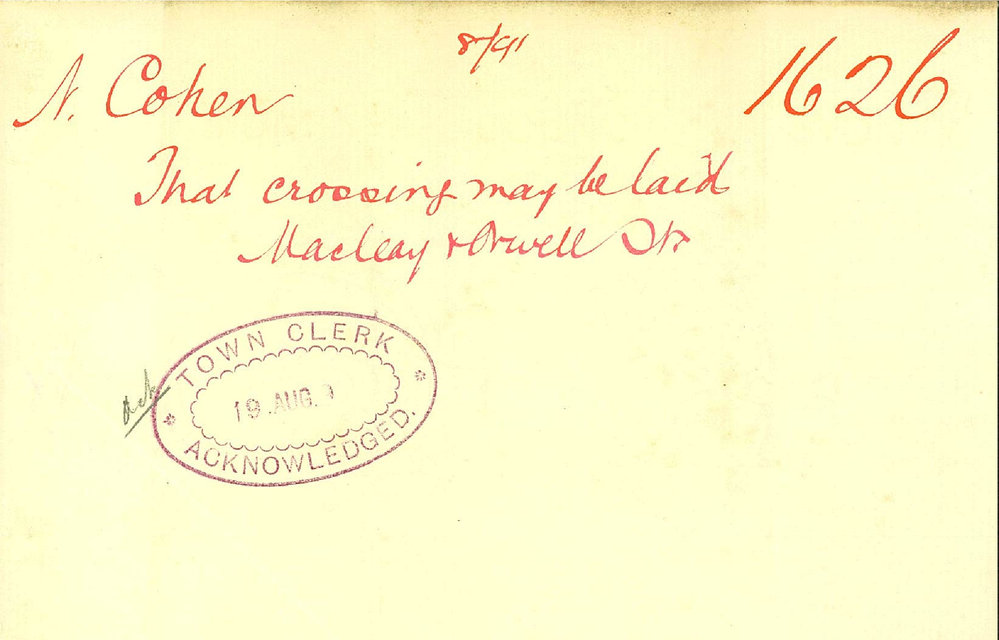 8/91
N. Cohen
1626
That crossing may be laid
Macleay & Orwell Sts
ack
TOWN CLERK
19. AUG. 9
ACKNOWLEDGED.